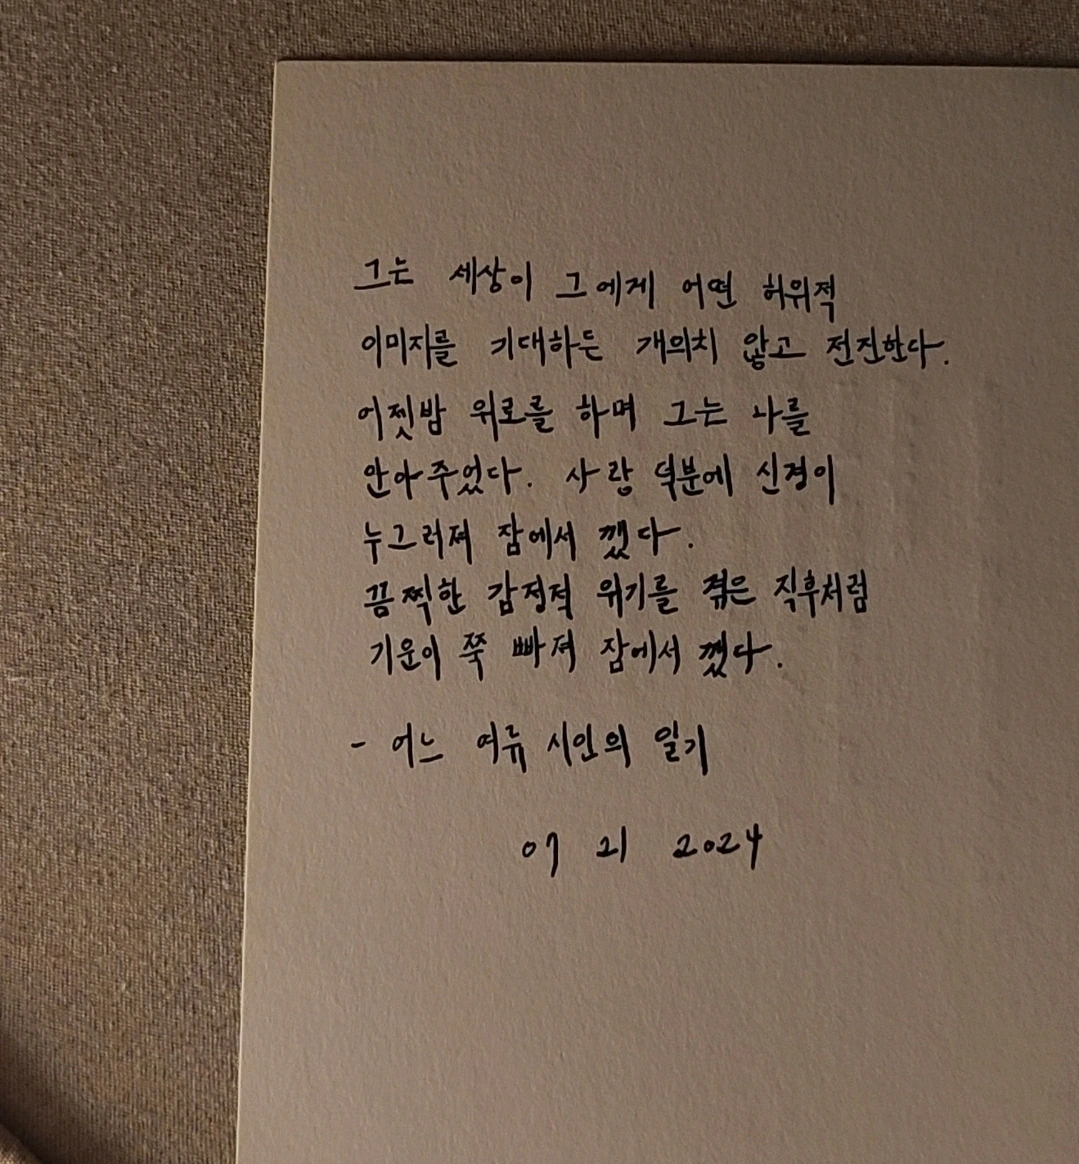 그는 세상이 그에게 어떤 허위적
이미지를 기대하든 개의치 않고 전진한다.
어젯밤 위로를 하며 그는 나를
안아주었다. 사랑 덕분에 신경이
누그러져 잠에서 깼다.
끔찍한 감정적 위기를 겪은 직후처럼
기운이 쭉 빠져 잠에서 깼다.
- 어느 여류 시인의 일기
07 21 2024